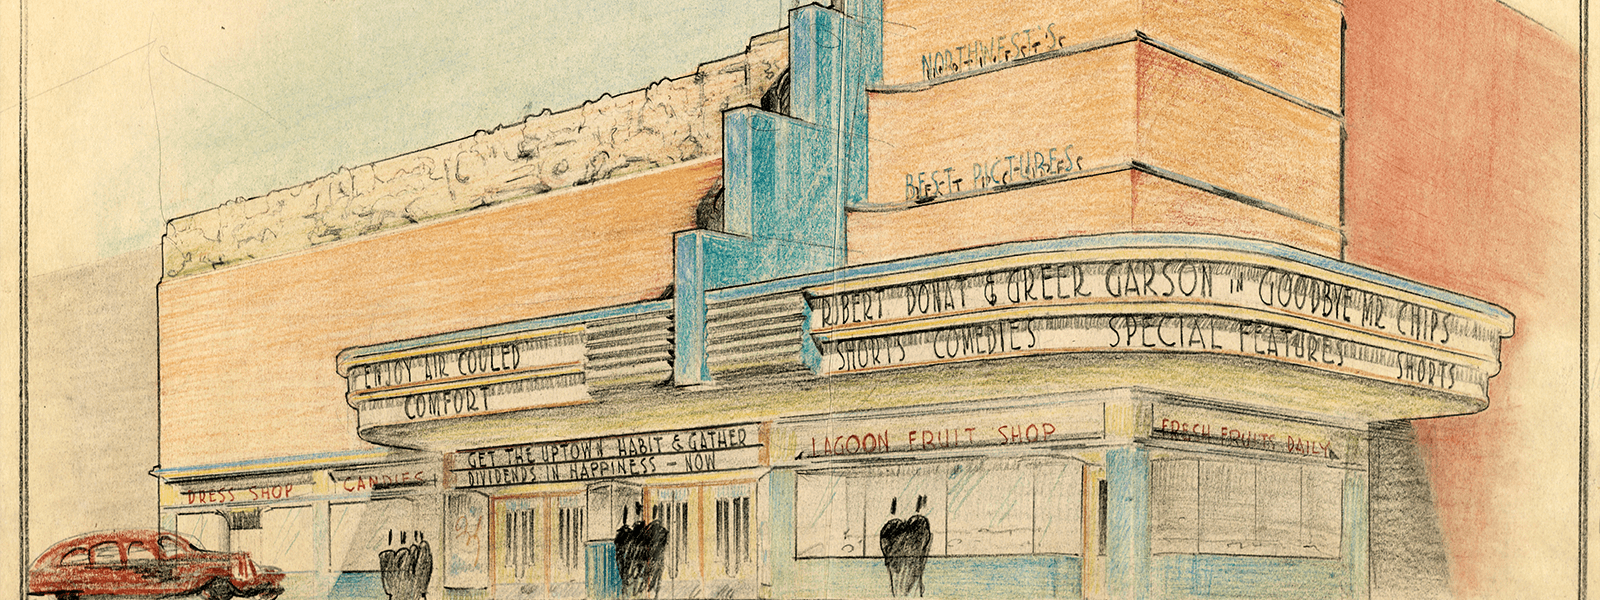 NORTHWEST'S
BEST PICTURES
ROBERT DONAT & GREER GARSON IN GOODBYE MR CHIPS
SHORTS COMEDIES SPECIAL FEATURES SHORTS
ENJOY AIR COOLED
COMFORT
GET THE UPTOWN HABIT & GATHER
DIVIDENDS IN HAPPINESS - NOW
LAGOON FRUIT SHOP
FRESH FRUITS DAILY
DRESS SHOP
CANDIES